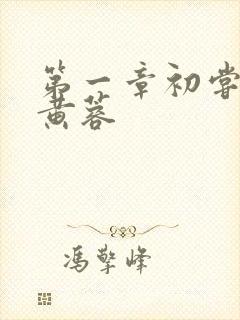 第一章初尝
黄蓉
冯擎峰